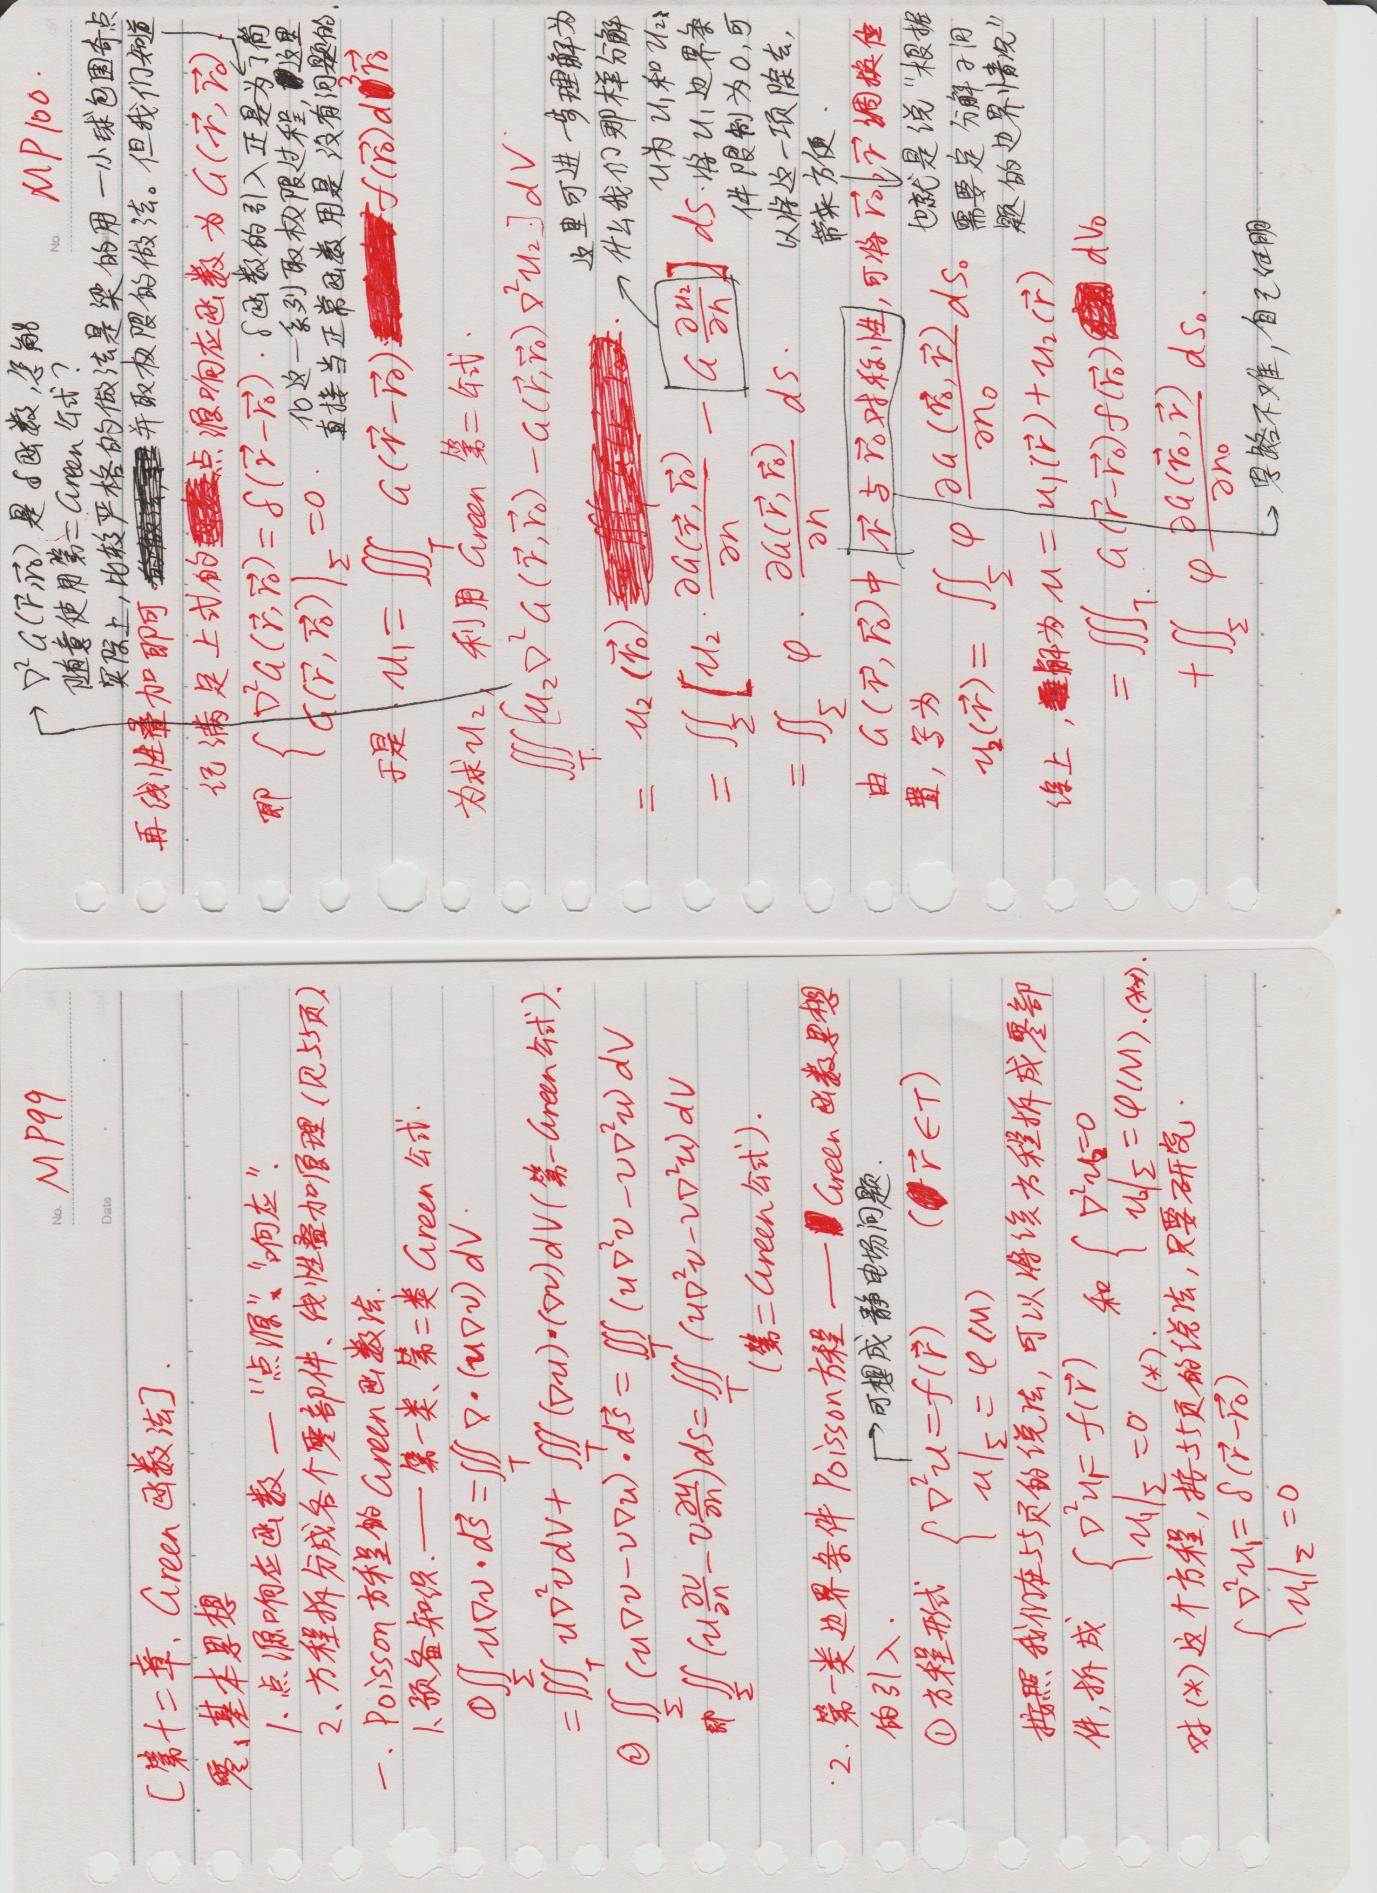 No. MP99
Date
[第十二章、Green函数法].
零、基本思想
1. 点源响应函数 — "点源"、"响应".
2、方程拆分成各个零部件、线性叠加原理(见55页).
一. Poisson方程的Green函数法.
1、预备知识. —— 第一类、第二类Green公式.
①∬_Σ u∇v·dS⃗ = ∭_T ∇·(u∇v) dV.
= ∭_T u∇²v dV + ∭_T (∇u)·(∇v) dV (第一Green公式).
② ∬_Σ (u∇v - v∇u)·dS⃗ = ∭_T (u∇²v - v∇²u) dV
即 ∬_Σ (u ∂v/∂n - v ∂u/∂n) dS = ∭_T (u∇²v - v∇²u) dV
(第二Green公式).
2. 第一类边界条件Poisson方程 —— Green函数思想
的引入.
→可想成静电场问题.
①方程形式 { ∇²u = f(r⃗) (r⃗ ∈ T)
u|_Σ = φ(M)
按照我们在55页的说法,可以将该方程拆成零部
件,拆成 { ∇²u₁ = f(r⃗) 和 { ∇²u₂ = 0
u₁|_Σ = 0 (*). u₂|_Σ = φ(M). (**).
对(*)这个方程,按55页的说法,只要研究.
{ ∇²u₁ = δ(r⃗-r⃗₀)
u₁|_Σ = 0
No. MP100.
→ ∇²G(r⃗,r⃗₀)是δ函数,怎能
随意使用第二Green公式?
实际上,比较严格的做法是梁的用一小球包围奇点
并取极限的做法。但我们知道
再线性叠加即可.
记满足上式的点源响应函数为G(r⃗,r⃗₀).
即 { ∇²G(r⃗,r⃗₀) = δ(r⃗-r⃗₀).
G(r⃗,r⃗₀)|_Σ = 0.
δ函数的引入正是为了简
化这一系列取极限过程,这里
直接当正常函数用是没有问题的.
于是. u₁ = ∭_T G(r⃗-r⃗₀) f(r⃗₀) d³r⃗₀
为求u₂, 利用Green第二公式.
∭_T [u₂∇²G(r⃗,r⃗₀) - G(r⃗,r⃗₀)∇²u₂] dV
= u₂(r⃗₀)
= ∬_Σ [u₂·∂G(r⃗,r⃗₀)/∂n - G ∂u₂/∂n] dS.
这里可进一步理解为
什么我们那样分解
u为u₁和u₂:
将u₁边界条
件限制为0,可
以将这一项除去,
带来方便.
= ∬_Σ φ·∂G(r⃗,r⃗₀)/∂n dS.
由G(r⃗,r⃗₀)中r⃗与r⃗₀对称性,可将r⃗₀,r⃗调换位
置,写为
u₂(r⃗) = ∬_Σ φ ∂G(r⃗₀,r⃗)/∂n₀ dS₀
也就是说"根据
需要定分解子问
题的边界情况"
综上,解为u = u₁(r⃗)+u₂(r⃗)
= ∭_T G(r⃗-r⃗₀)f(r⃗₀) dV₀
+ ∬_Σ φ ∂G(r⃗₀,r⃗)/∂n₀ dS₀.
→ 思路不难,自己证明